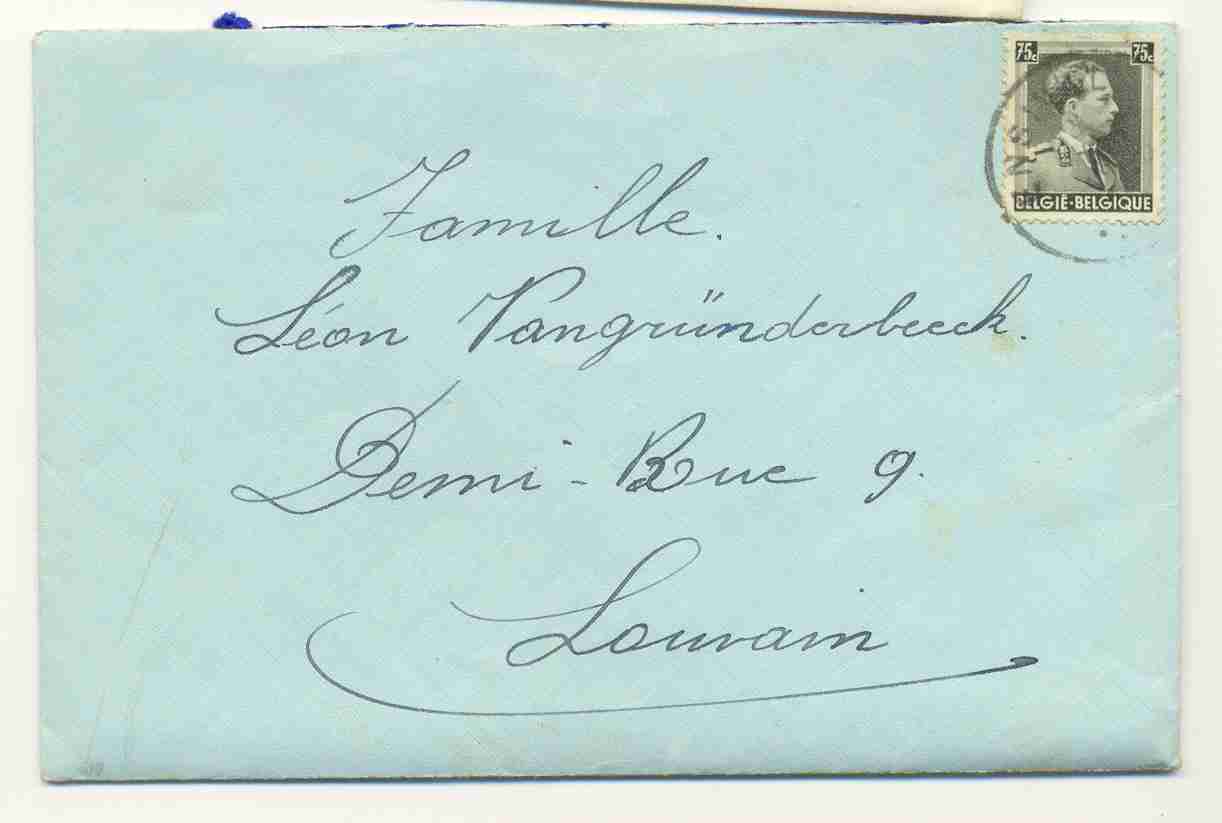 75c 75c
BELGIË-BELGIQUE
Famille.
Léon Vangründerbeeck.
Demi-Rue 9.
Louvain